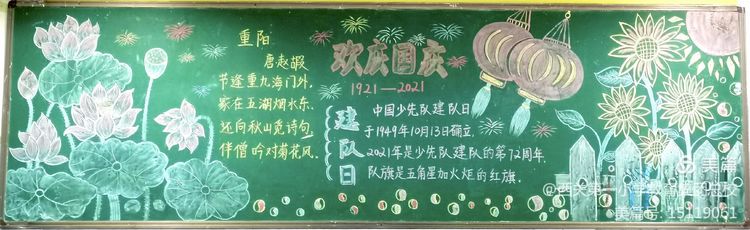 重阳
唐赵嘏
节逢重九海门外,
家在五湖烟水东,
还向秋山觅诗句,
伴僧吟对菊花风.
欢庆国庆
1921—2021
建队日
中国少先队建队日
于1949年10月13日确立,
2021年是少先队建队的第72周年.
队旗是五角星加火炬的红旗.
美篇
美篇号:15119061